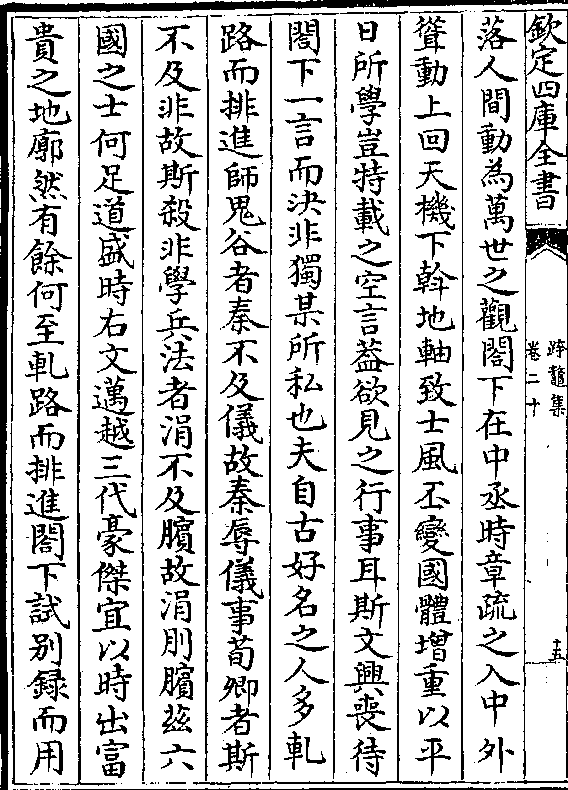 欽定四庫全書
跨鼇集
卷二十
十五
落人間動為萬世之觀閣下在中丞時章疏之入中外
聳動上回天機下斡地軸致士風丕變國體增重以平
日所學豈特載之空言蓋欲見之行事耳斯文興喪待
閣下一言而決非獨某所私也夫自古好名之人多軋
路而排進師鬼谷者秦不及儀故秦辱儀事荀卿者斯
不及非故斯殺非學兵法者涓不及臏故涓刖臏茲六
國之士何足道盛時右文邁越三代豪傑宜以時出富
貴之地廓然有餘何至軋路而排進閣下試別録而用